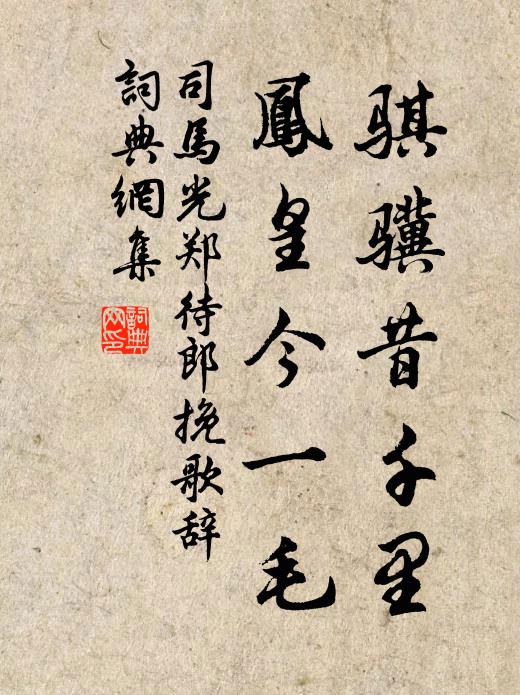 骐骥昔千里
鳳皇今一毛
司馬光郑待郎挽歌辞
詞典網集
詞典
网印